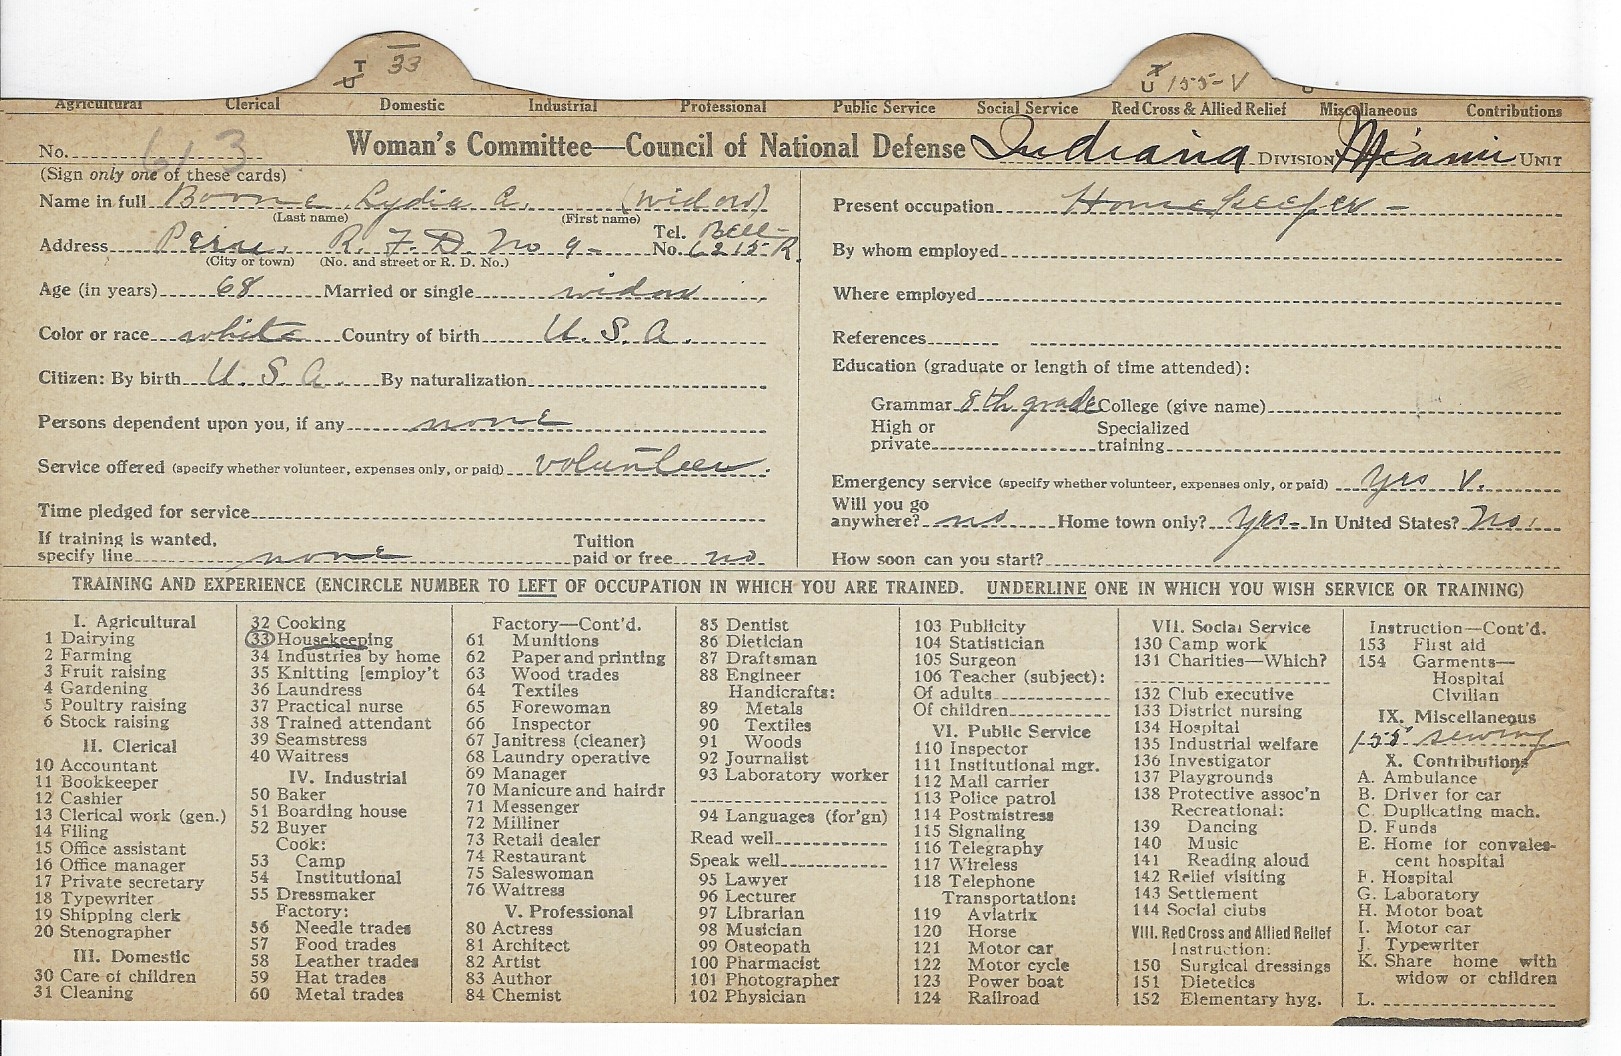 T
U 33
T
U 155-V
Agricultural Clerical Domestic Industrial Professional Public Service Social Service Red Cross & Allied Relief Miscellaneous Contributions
No. 613 Woman's Committee—Council of National Defense Indiana DIVISION Miami UNIT
(Sign only one of these cards)
Name in full Boone Lydia A. (widow)
(Last name) (First name)
Address Peru, R. F. D. No 9- Tel. No. Bell- 6215-R
(City or town) (No. and street or R. D. No.)
Age (in years) 68 Married or single widow
Color or race white Country of birth U. S. A.
Citizen: By birth U. S. A. By naturalization
Persons dependent upon you, if any none
Service offered (specify whether volunteer, expenses only, or paid) volunteer.
Time pledged for service
If training is wanted, specify line none Tuition paid or free no
Present occupation Housekeeper-
By whom employed
Where employed
References
Education (graduate or length of time attended):
Grammar 8th grade College (give name)
High or private Specialized training
Emergency service (specify whether volunteer, expenses only, or paid) yes V.
Will you go anywhere? no Home town only? Yes- In United States? No.
How soon can you start?
TRAINING AND EXPERIENCE (ENCIRCLE NUMBER TO LEFT OF OCCUPATION IN WHICH YOU ARE TRAINED. UNDERLINE ONE IN WHICH YOU WISH SERVICE OR TRAINING)
I. Agricultural
1 Dairying
2 Farming
3 Fruit raising
4 Gardening
5 Poultry raising
6 Stock raising
II. Clerical
10 Accountant
11 Bookkeeper
12 Cashier
13 Clerical work (gen.)
14 Filing
15 Office assistant
16 Office manager
17 Private secretary
18 Typewriter
19 Shipping clerk
20 Stenographer
III. Domestic
30 Care of children
31 Cleaning
32 Cooking
33 Housekeeping
34 Industries by home
35 Knitting [employ't
36 Laundress
37 Practical nurse
38 Trained attendant
39 Seamstress
40 Waitress
IV. Industrial
50 Baker
51 Boarding house
52 Buyer
Cook:
53 Camp
54 Institutional
55 Dressmaker
Factory:
56 Needle trades
57 Food trades
58 Leather trades
59 Hat trades
60 Metal trades
Factory—Cont'd.
61 Munitions
62 Paper and printing
63 Wood trades
64 Textiles
65 Forewoman
66 Inspector
67 Janitress (cleaner)
68 Laundry operative
69 Manager
70 Manicure and hairdr
71 Messenger
72 Milliner
73 Retail dealer
74 Restaurant
75 Saleswoman
76 Waitress
V. Professional
80 Actress
81 Architect
82 Artist
83 Author
84 Chemist
85 Dentist
86 Dietician
87 Draftsman
88 Engineer
Handicrafts:
89 Metals
90 Textiles
91 Woods
92 Journalist
93 Laboratory worker
94 Languages (for'gn)
Read well
Speak well
95 Lawyer
96 Lecturer
97 Librarian
98 Musician
99 Osteopath
100 Pharmacist
101 Photographer
102 Physician
103 Publicity
104 Statistician
105 Surgeon
106 Teacher (subject):
Of adults
Of children
VI. Public Service
110 Inspector
111 Institutional mgr.
112 Mail carrier
113 Police patrol
114 Postmistress
115 Signaling
116 Telegraphy
117 Wireless
118 Telephone
Transportation:
119 Aviatrix
120 Horse
121 Motor car
122 Motor cycle
123 Power boat
124 Railroad
VII. Social Service
130 Camp work
131 Charities—Which?
132 Club executive
133 District nursing
134 Hospital
135 Industrial welfare
136 Investigator
137 Playgrounds
138 Protective assoc'n
Recreational:
139 Dancing
140 Music
141 Reading aloud
142 Relief visiting
143 Settlement
144 Social clubs
VIII. Red Cross and Allied Relief
Instruction:
150 Surgical dressings
151 Dietetics
152 Elementary hyg.
Instruction—Cont'd.
153 First aid
154 Garments—
Hospital
Civilian
IX. Miscellaneous
155 sewing
X. Contributions
A. Ambulance
B. Driver for car
C. Duplicating mach.
D. Funds
E. Home for convales-
cent hospital
F. Hospital
G. Laboratory
H. Motor boat
I. Motor car
J. Typewriter
K. Share home with
widow or children
L.